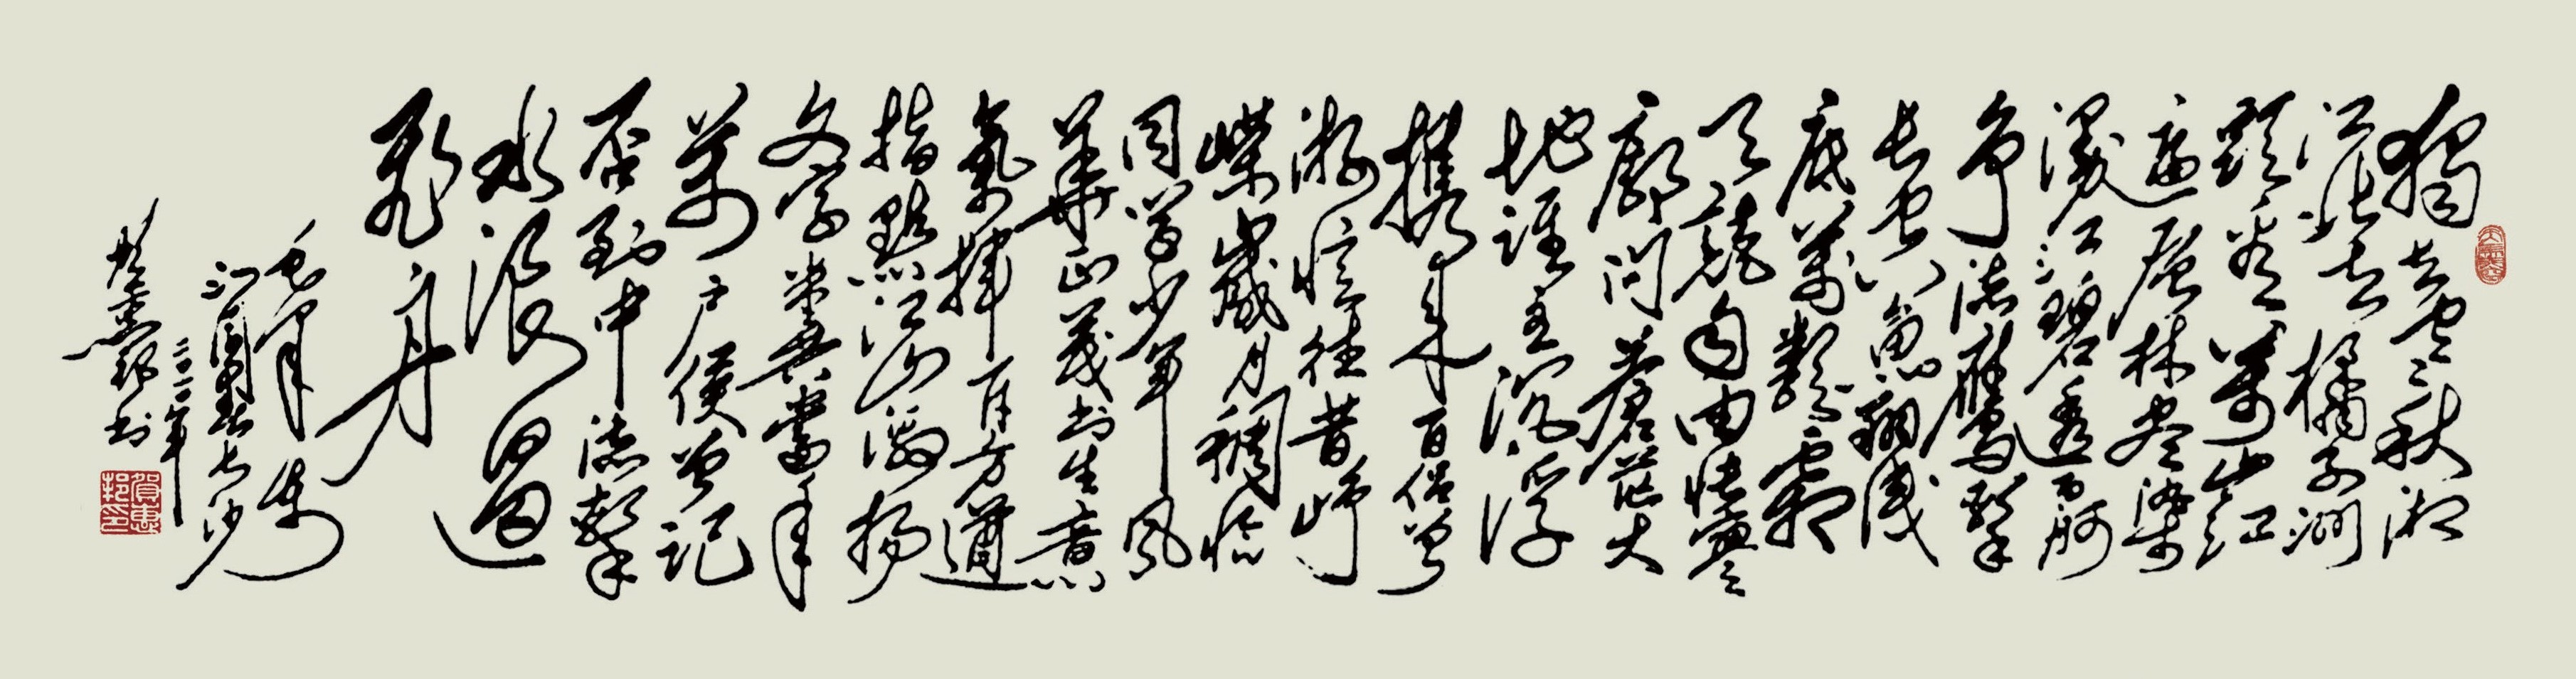 獨立寒秋湘
江北去橘子洲
頭看萬山紅
遍層林盡染
漫江碧透百舸
争流鷹擊
長空魚翔淺
底萬類霜
天競自由悵寥
廓問蒼茫大
地誰主沉浮
攜來百侣曾
游憶往昔崢
嶸歲月稠恰
同學少年風
華正茂书生意
氣揮斥方遒
指點江山激揚
文字糞土當年
萬户侯曾記
否到中流擊
水浪遏
飛舟
毛澤東
沁園春長沙
賀惠邦书
賀惠邦印